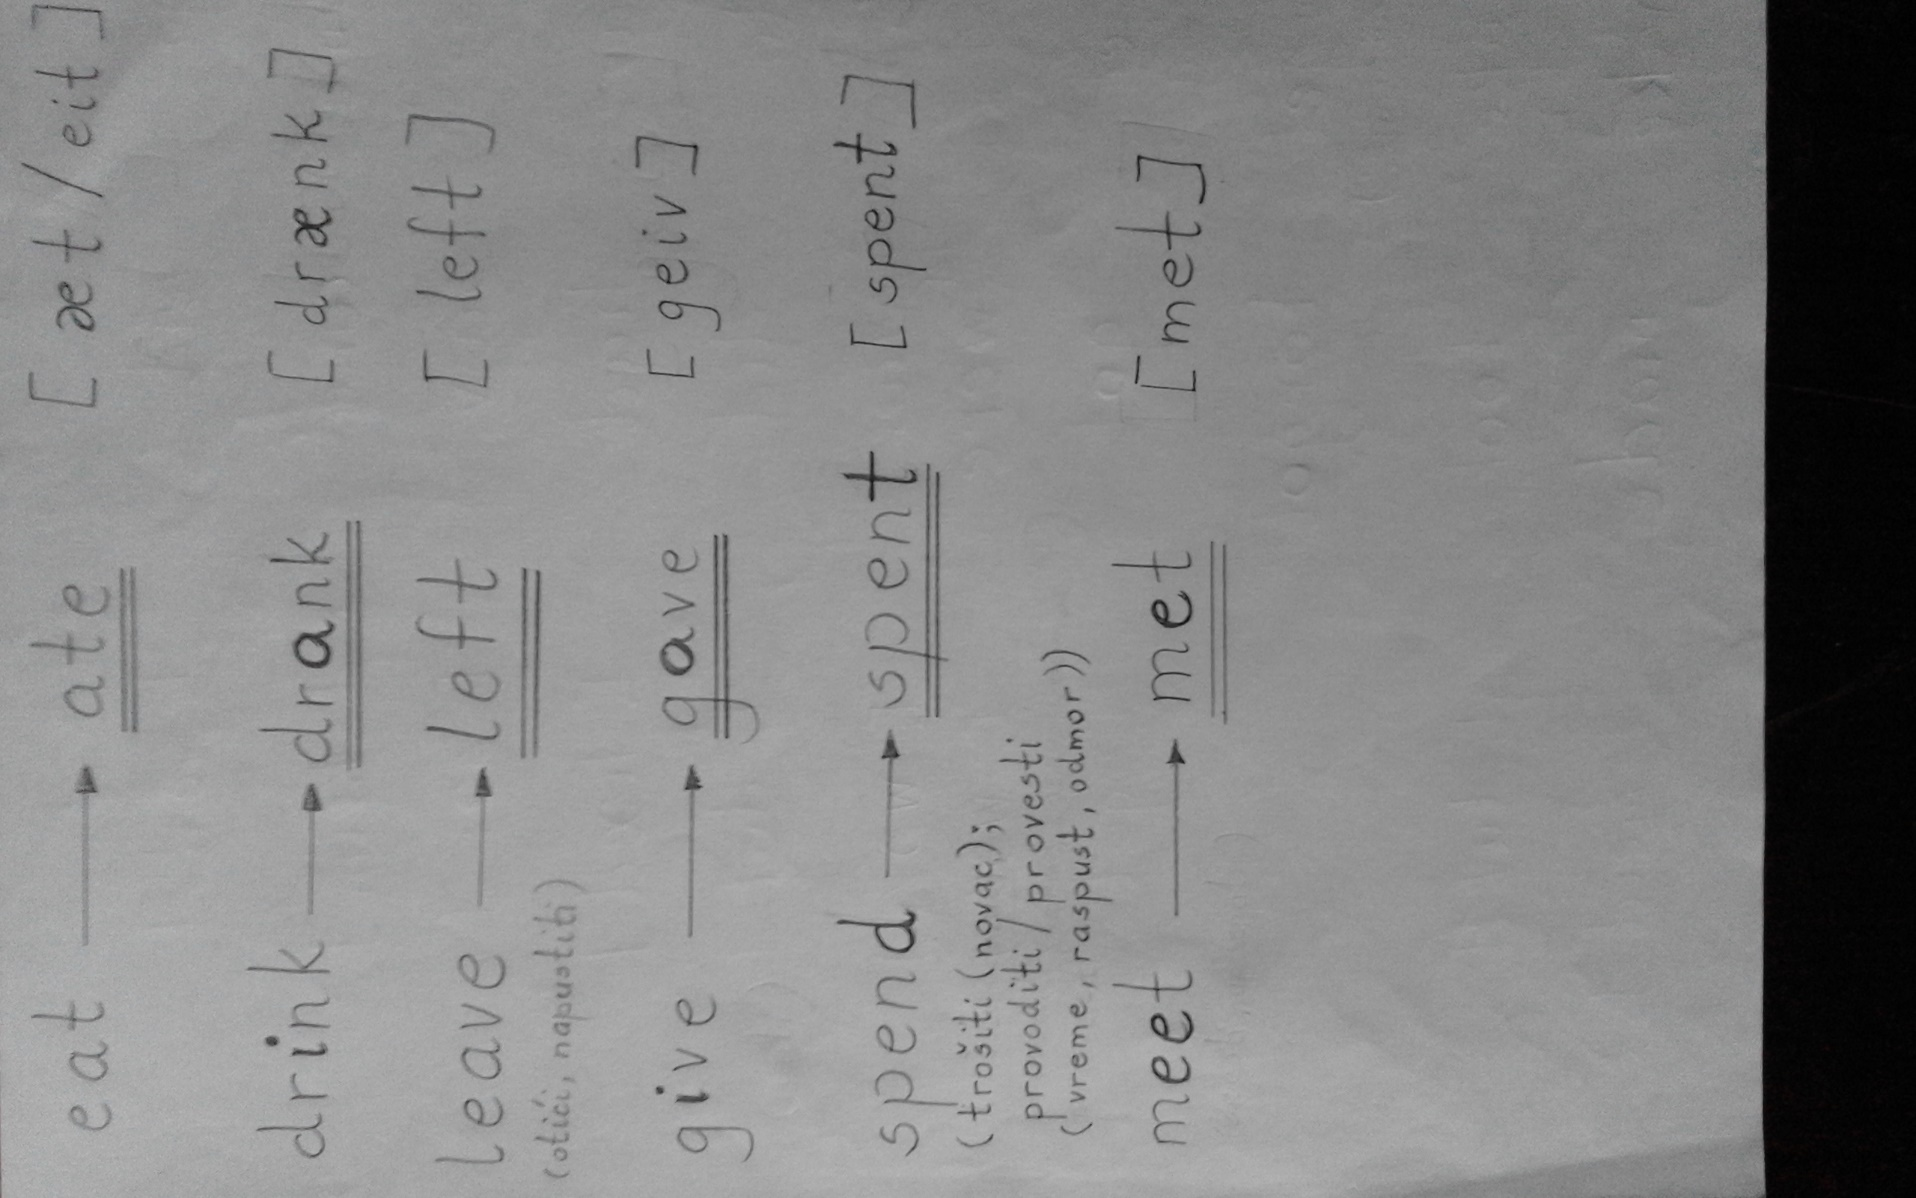 eat → ate [æt/eit]
drink → drank [drænk]
leave → left [left]
(otići, napustiti)
give → gave [geiv]
spend → spent [spent]
(trošiti (novac);
provoditi/provesti
(vreme, raspust, odmor))
meet → met [met]